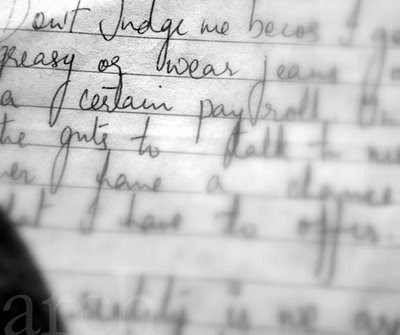 Don't Judge me becos I go
greasy or wear jeans
a certain payroll.
the guts to talk to me
have a chance
I have to offer.
is
arch